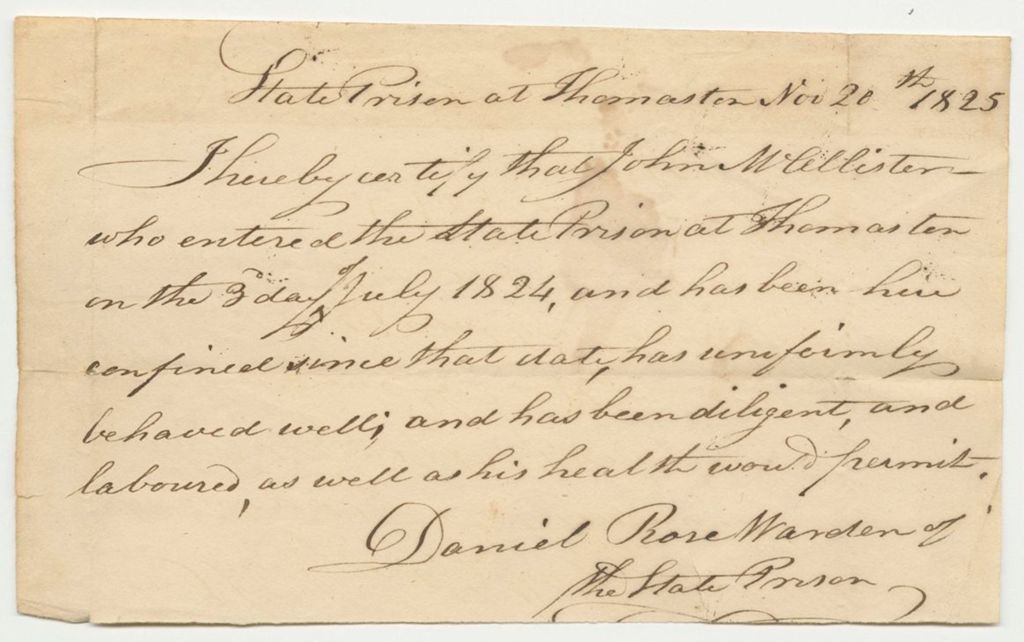 State Prison at Thomaston Nov 20th 1825
I hereby certify that John McCllister
who entered the State Prison at Thomaston
on the 3d day of July 1824, and has been here
confined since that date, has uniformly
behaved well; and has been diligent, and
laboured, as well as his health would permit.
Daniel Rose Warden of
the State Prison